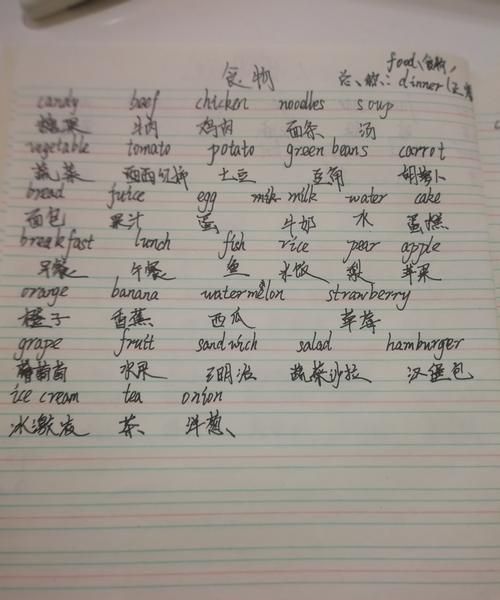 food、食物,
食物
总、称: dinner(正
candy beef chicken noodles soup
糖果 牛肉 鸡肉 面条 汤
vegetable tomato potato green beans carrot
蔬菜 西红柿 土豆 豆角 胡萝卜
bread juice egg milk water cake
面包 果汁 蛋 牛奶 水 蛋糕
breakfast lunch fish rice pear apple
早餐 午餐 鱼 米饭 梨 苹果
orange banana watermelon strawberry
橙子 香蕉 西瓜 草莓
grape fruit sandwich salad hamburger
葡萄 水果 三明治 蔬菜沙拉 汉堡包
ice cream tea onion
冰激凌 茶、 洋葱、